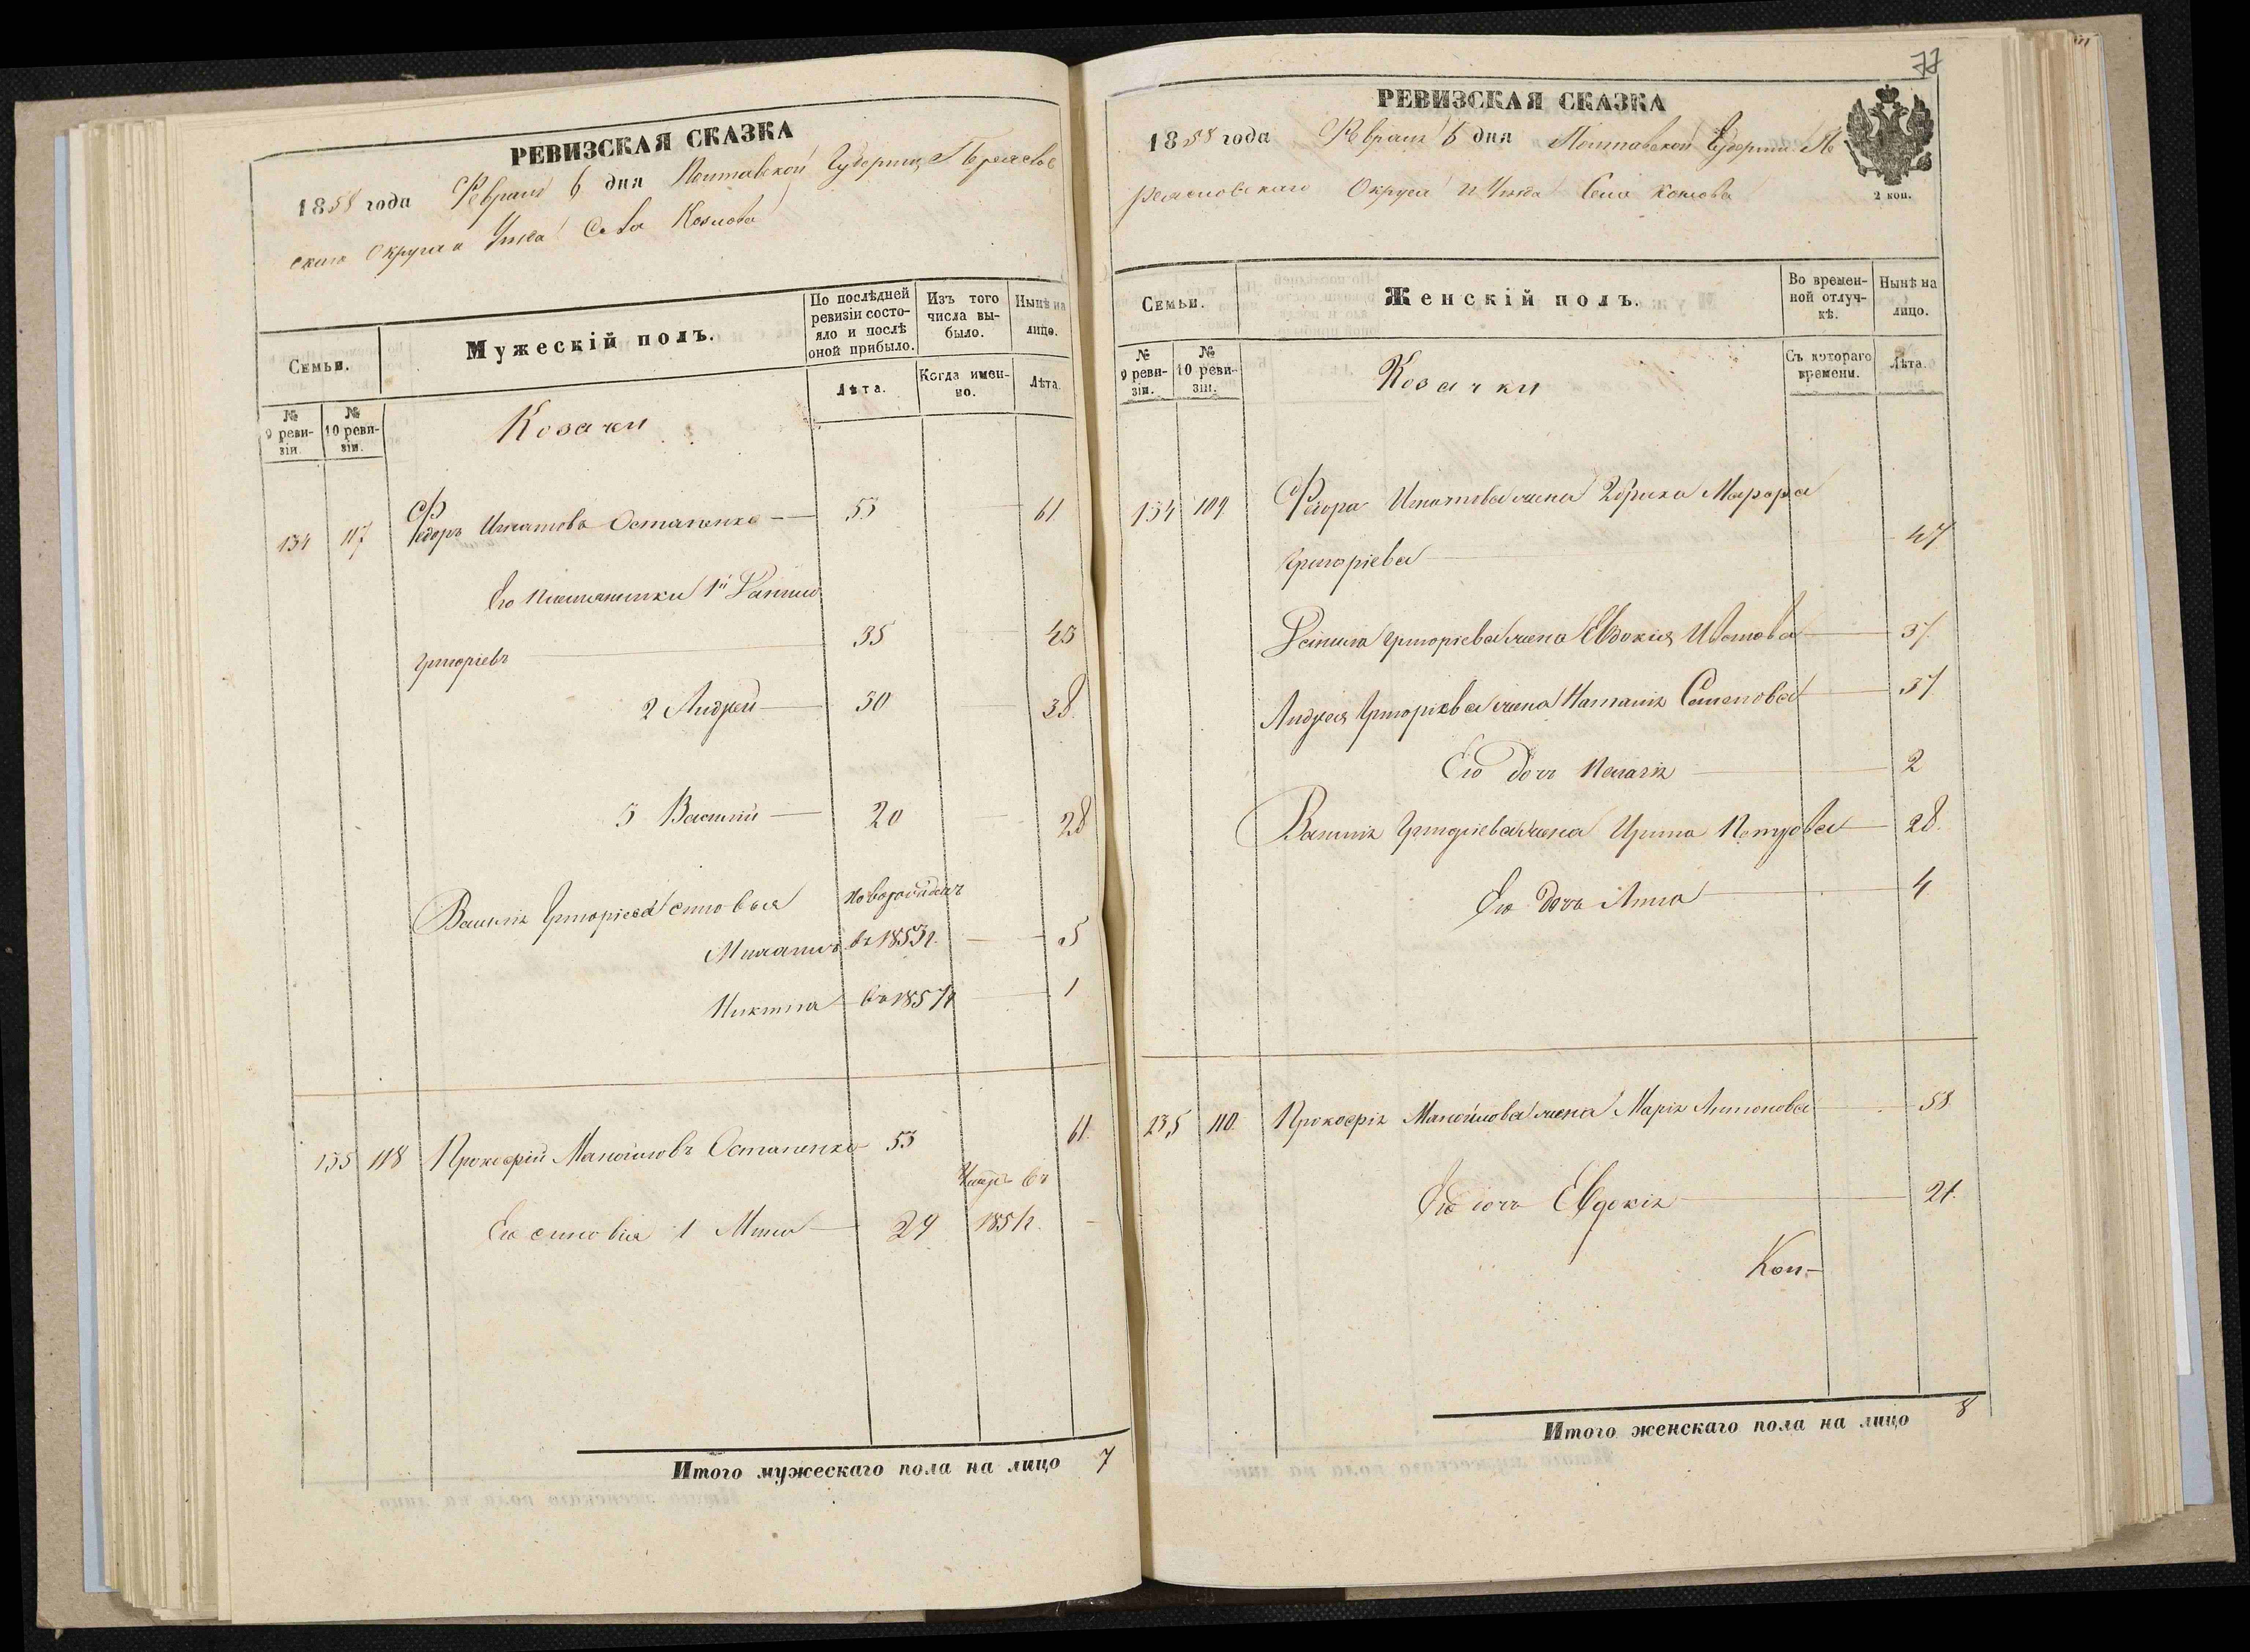 РЕВИЗСКАЯ СКАЗКА
1858 года Февраля 6 дня Полтавской Губернии Переяслов
скаго Округа и Уезда Села Козлова
Семьи.
Мужескій полъ.
По послѣдней ревизіи состо-
яло и послѣ оной прибыло.
Изъ того числа вы-
было.
Нынѣ на лицо.
№ 9 реви-
зіи.
№ 10 реви-
зіи.
Козаки
Лѣта.
Когда имен-
но.
Лѣта.
134 117 Федоръ Игнатовъ Остапенко 53 61
Его племянники 1й Данило
Григорієвъ 35 43
2 Андрей 30 38.
3 Василій 20 28
Василія Григоріева синовья новорожден
въ 1853г. 5
Никита въ 1857г 1
135 118 Прокофій Манойловъ Остапенко 53 61.
Умеръ въ
Его синовья 1 29 185 г. -
Итого мужескаго пола на лицо 7
77
РЕВИЗСКАЯ СКАЗКА
1858 года Февраля 6 дня Полтавской Губернии Пе
реясловскаго Округа и Уезда Села Козлова
2 коп.
Семьи.
Женскій полъ.
Во времен-
ной отлуч-
кѣ.
Нынѣ на лицо.
№ 9 реви-
зіи.
№ 10 реви-
зіи.
Козачки
Съ котораго времени.
Лѣта.
134 Федора Игнатова жена
Григоріева 47
Данила Григоріева жена Евдокія 37
Андрея Григоріева жена Наталія Семенова 37
Его дочь Пелагія 2
Василія Григоріева жена Ирина Петрова 28.
Его дочь Анна 4.
135 110. Прокофія Манойлова жена Марія Антонова 58
Его дочь Евдокія 21.
Коп-
Итого женскаго пола на лицо 8